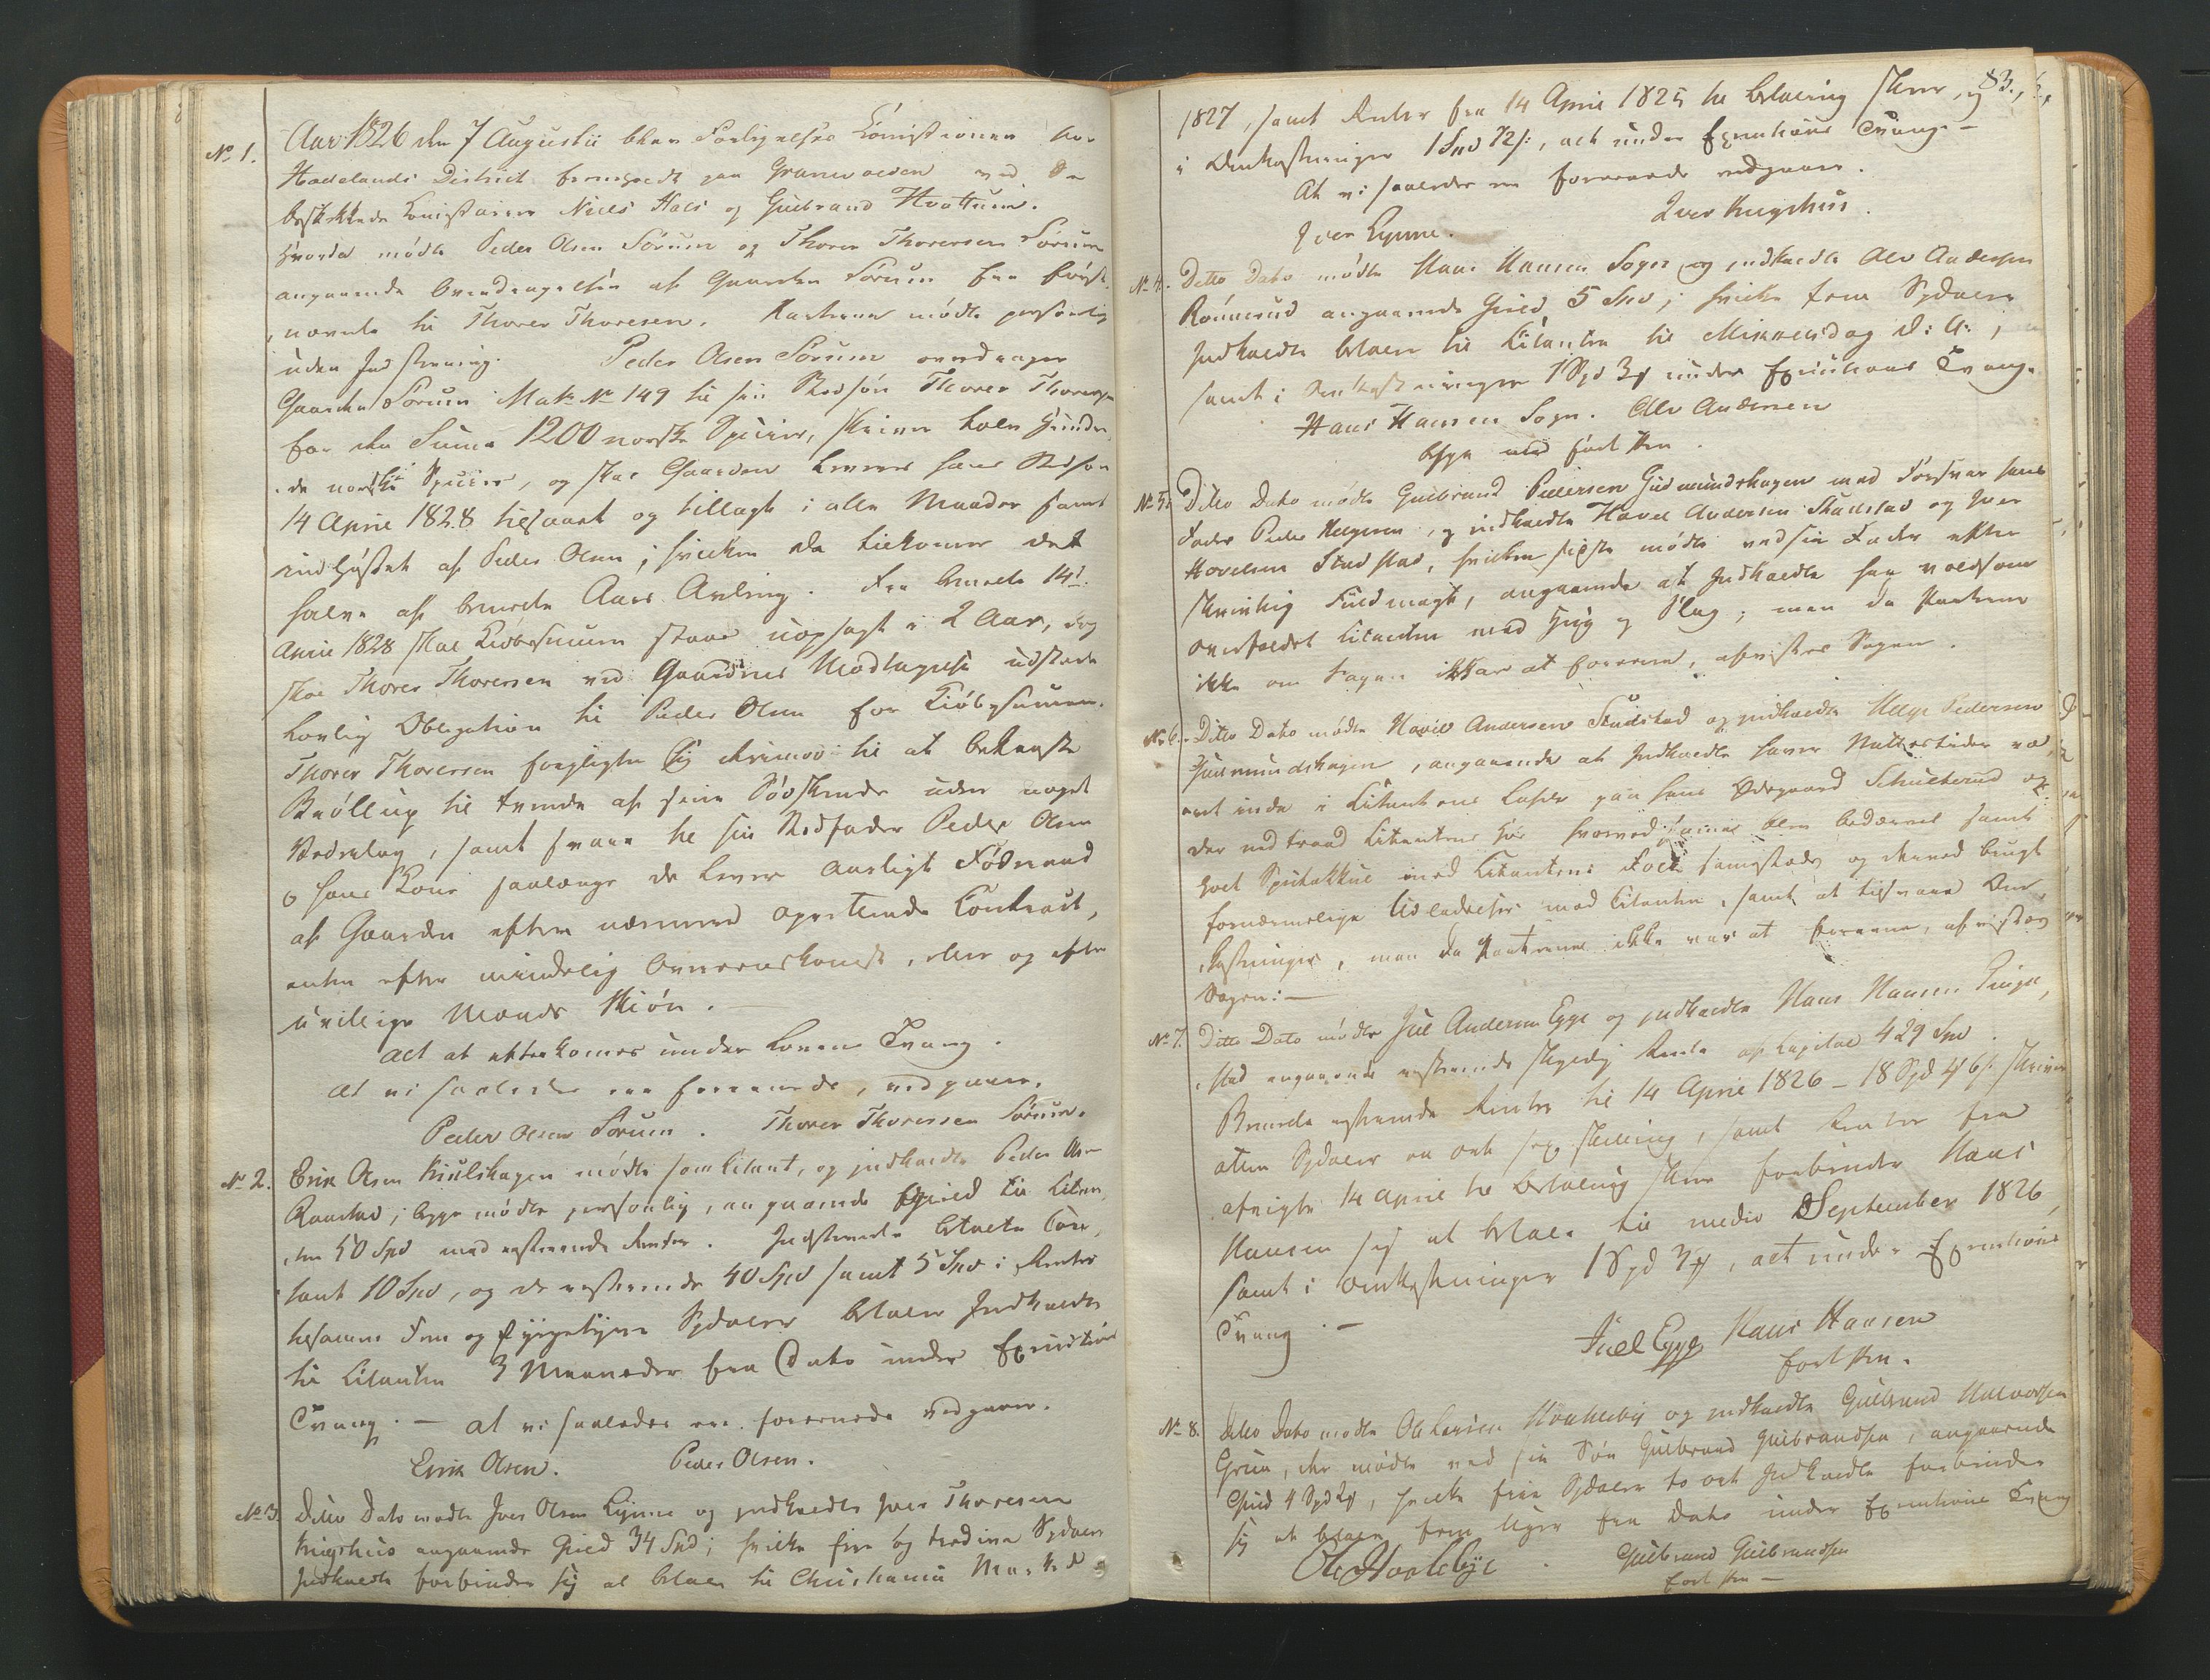 No 1. Aar 1826 den 7 Augustii blev Forligelses Comissionen for
Hadelands District foretaget paa Granevolden ved de
beskikkede Comissairer Niels Hals og Gulbrand Hvattum.
Hvorda mødte Peder Olsen Sørum og Thorer Thorersen Sørum
angaaende Overdragelsen af Gaarden Sørum fra først-
nævnte til Thorer Thoresen. Parterne mødte personlig
uden Indstevning. Peder Olsen Sørum overdrager
Gaarden Sørum Matr. No 149 til sin Stedsøn Thorer Thorersen
for den Suma 1200 norske Specier, skriver tolv Hundre-
de norske Specier, og skal Gaarden leveres hans Stedsøn
14 April 1828 tilsaaet og tillagt i alle Maader samt
indhøstet af Peder Olsen; hvilken da tilkommer det
halve af bemeldte Aars Avling. Fra bemeldte 14de
April 1828 skal Kiøbesummen staae uopsagt i 2 Aar, dog
skal Thorer Thorersen ved Gaardens Modtagelse udstede
lovlig Obligation til Peder Olsen for Kiøbesummen.
Thorer Thorersen forpligter sig derimod til at bekoste
Bröllup til tvende af sine Södskende uden noget
Vederlag, samt svare til sin Stedfader Peder Olsen
o hans Kone saalænge de lever aarligt Födraad
af Gaarden efter nærmere oprettende Contract,
enten efter mindelig Overeenskomst, eller og efter
uvillige Mænds Skiön.
Alt at efterkomes under Lovens Tvang.
At vi saaledes ere foreenede, vedgaaer.
Peder Olsen Sørum. Thorer Thoressen Sørum.
No 2. Erik Olsen Kiulshagen mødte som Citant, og indkaldte Peder Olsen
Raastad; begge mødte personlig, angaaende Gield til Citan-
ten 50 Spd med resterende Renter. Indstevnte betalte Con-
tant 10 Spd, og de resterende 40 Spd samt 5 Spd i Renter
tilsamen Fem og fyrgetyve Spdaler betaler Indkaldte
til Citanten 3 Maaneder fra Dato under Execution
Tvang. — At vi saaledes ere foreenede vedgaaer.
Erik Olsen. Peder Olsen.
No 3. Ditto Dato mødte Iver Olsen Lynne og indkaldte Iver Thoresen
Krigshus angaaende Gield 34 Spd; hvilke fire og tredive Spdaler
Indkaldte forbinder sig at betale til Christiania Marked
83.
1827, samt Renter fra 14 April 1825 til betaling skeer, og
i Omkostninger 1 Spd 72 s:, alt under Executions Tvang —
At vi saaledes ere foreenede vedgaaer.
Iver Lynne. Iver Krigshus.
No 4. Ditto Dato mødte Hans Hansen Sogn og indkaldte Ole Andersen
Rønnerud angaaende Gield 5 Spd; hvilke fem Spdaler
Indkaldte betaler til Citanten til Mikkelsdag d: A:,
samt i Omkostninger 1 Spd 3 under Executions Tvang.
Hans Hansen Sogn. Ole Andersen
begge med ført Pen.
No 5. Ditto Dato mødte Gulbrand Pedersen Gudmundshagen med Forsvar hans
Fader Peder Helgesen, og indkaldte Hovel Andersen Studstad og Iver
Hovelsen Studstad, hvilken sidste mødte ved sin Fader efter
skriftlig Fuldmagt, angaaende at Indkaldte har voldsom
overfaldet Citanten med Hug og Slag; men da Parterne
ikke om Sagen ikkvar at foreene, afvistes Sagen.
No 6. Ditto Dato mødte Hovel Andersen Studstad og indkaldte Helge Pedersen
Gudmundshagen, angaaende at Indkaldte haver Nattestider væ-
ret inde i Citantens Lade paa hans Ødegaard Schulterud og
der nedtraad Citantens Høe hvorved samme blev bedærvet samt
holt Spitakkel med Citantens Folk samestæds og derved brugt
fornærmelige Udladelser mod Citanten, samt at tilsvare Om-
kostninger, men da Parterne ikke var at foreene, afvistes
Sagen: —
No 7. Ditto Dato mødte Juel Andersen Egge og indkaldte Hans Hansen Tinge-
stad angaaende resterende skyldig Rente af Capital 429 Spd.
Bemeldte resterende Renter til 14 April 1826 — 18 Spd 4 6 s. skriver
atten Spdaler en ort sex skilling, samt Renter fra
afvigte 14 April til betaling skeer forbinder Hans
Hansen sig at betale til medio September 1826,
samt i Omkostninger 1 Spd 3, alt under Executions
Tvang. —
Juel Egge Hans Hansen
ført Pen.
No 8. Ditto Dato mødte Ole Larsen Hoolebye og indkaldte Gulbrand Halvorsen
Grua, der mødte ved sin Søn Gulbrand Gulbrandsen, angaaende
Gield 4 Spd 2, hvilke fire Spdaler to ort Indkaldte forbinder
sig at betale fem Uger fra Dato under Executions Tvang
Ole Hoolebye Gulbrand Gulbrandsen
ført Pen —